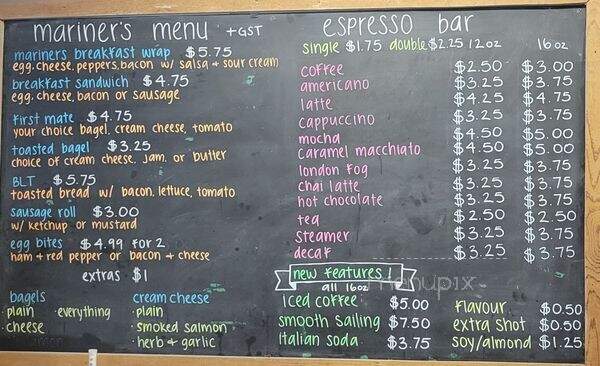 mariner's menu +GST
mariners breakfast wrap $5.75
egg, cheese, peppers, bacon w/ salsa + sour cream
breakfast sandwich $4.75
egg, cheese, bacon or sausage
First mate $4.75
your choice bagel, cream cheese, tomato
toasted bagel $3.25
choice of cream cheese, jam, or butter
BLT $5.75
toasted bread w/ bacon, lettuce, tomato
sausage roll $3.00
w/ ketchup or mustard
egg bites $4.99 for 2
ham + red pepper or bacon + cheese
extras $1
bagels
plain · everything
cheese
cream cheese
· plain
· smoked salmon
· herb + garlic
espresso bar
single $1.75 double $2.25 12oz 16oz
coffee $2.50 $3.00
americano $3.25 $3.75
latte $4.25 $4.75
cappuccino $3.25 $3.75
mocha $4.50 $5.00
caramel macchiato $4.50 $5.00
london fog $3.25 $3.75
chai latte $3.25 $3.75
hot chocolate $3.25 $3.75
tea $2.50 $2.50
steamer $3.25 $3.75
decaf $3.25 $3.75
new features!
all 16oz
iced coffee $5.00
smooth sailing $7.50
italian soda $3.75
flavour $0.50
extra shot $0.50
soy/almond $1.25
menupix